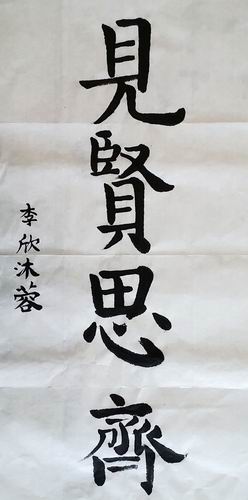 見賢思齊
李欣沐蓉